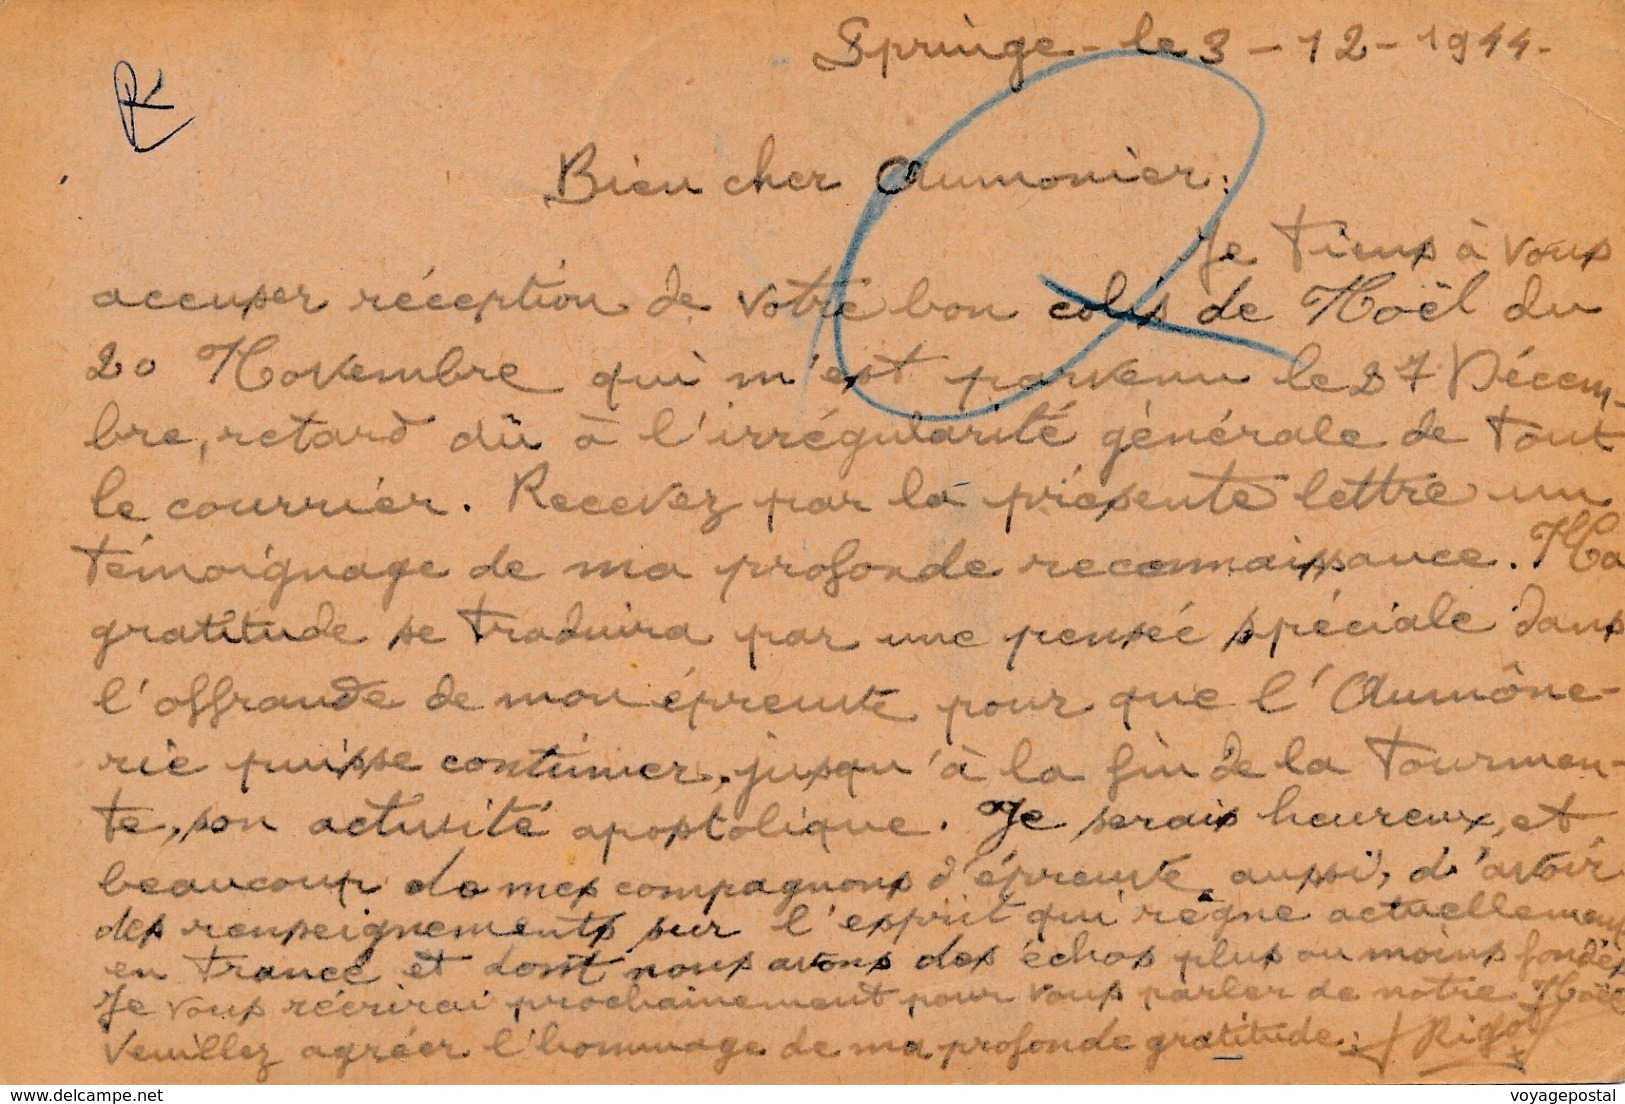 Springe - le 3 - 12 - 1944.
Bien cher Aumonier:
Je tiens à vous
accuser réception de votre bon colis de Noël du
20 Novembre qui m'est parvenu le 27 Décem-
bre, retard dû à l'irrégularité générale de tout
le courrier. Recevez par la présente lettre un
témoignage de ma profonde reconnaissance. Ma
gratitude se traduira par une pensée spéciale dans
l'offrande de mon épreuve pour que l'Aumône-
rie puisse continuer, jusqu'à la fin de la tourmen-
te, son activité apostolique. Je serais heureux, et
beaucoup de mes compagnons d'épreuve aussi, d'avoir
des renseignements sur l'esprit qui règne actuellement
en France et dont nous avons des échos plus ou moins fondés
Je vous récrirai prochainement pour vous parler de notre Noël
Veuillez agréer l'hommage de ma profonde gratitude: J Rigot
www.delcampe.net
voyagepostal